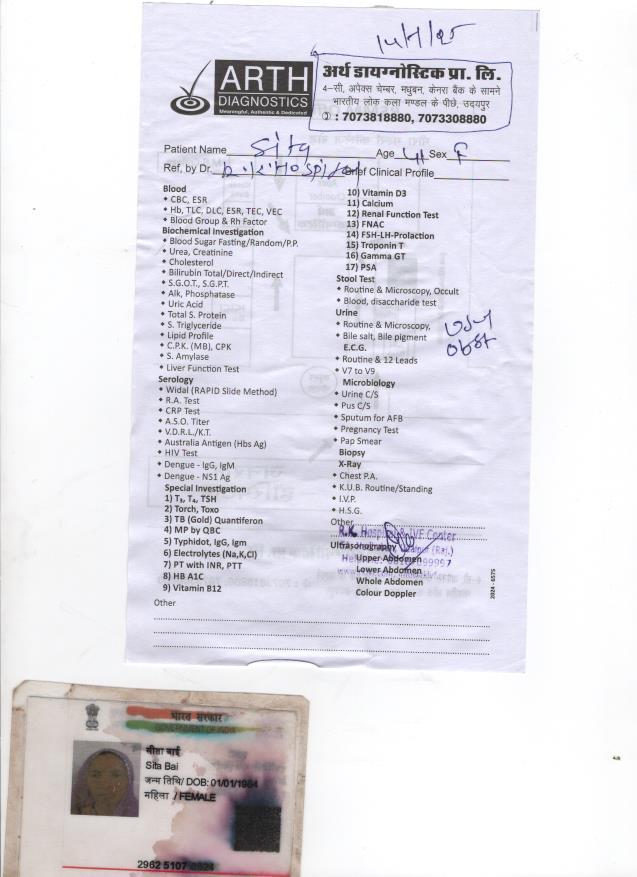 14/7/25
ARTH
DIAGNOSTICS
Meaningful, Authentic & Dedicated
अर्थ डायग्नोस्टिक प्रा. लि.
4–सी, अपेक्स चेम्बर, मधुबन, केनरा बैंक के सामने
भारतीय लोक कला मण्डल के पीछे, उदयपुर
: 7073818880, 7073308880
Patient Name Sita Age 41 Sex F
Ref, by Dr. R.K HOSPital Brief Clinical Profile
Blood
CBC, ESR
Hb, TLC, DLC, ESR, TEC, VEC
Blood Group & Rh Factor
Biochemical Investigation
Blood Sugar Fasting/Random/P.P.
Urea, Creatinine
Cholesterol
Bilirubin Total/Direct/Indirect
S.G.O.T., S.G.P.T.
Alk, Phosphatase
Uric Acid
Total S. Protein
S. Triglyceride
Lipid Profile
C.P.K. (MB), CPK
S. Amylase
Liver Function Test
Serology
Widal (RAPID Slide Method)
R.A. Test
CRP Test
A.S.O. Titer
V.D.R.L./K.T.
Australia Antigen (Hbs Ag)
HIV Test
Dengue - IgG, IgM
Dengue - NS1 Ag
Special Investigation
1) T₃, T₄, TSH
2) Torch, Toxo
3) TB (Gold) Quantiferon
4) MP by QBC
5) Typhidot, IgG, Igm
6) Electrolytes (Na,K,Cl)
7) PT with INR, PTT
8) HB A1C
9) Vitamin B12
10) Vitamin D3
11) Calcium
12) Renal Function Test
13) FNAC
14) FSH-LH-Prolaction
15) Troponin T
16) Gamma GT
17) PSA
Stool Test
Routine & Microscopy, Occult
Blood, disaccharide test
Urine
Routine & Microscopy,
Bile salt, Bile pigment
E.C.G.
Routine & 12 Leads
V7 to V9
Microbiology
Urine C/S
Pus C/S
Sputum for AFB
Pregnancy Test
Pap Smear
Biopsy
X-Ray
Chest P.A.
K.U.B. Routine/Standing
I.V.P.
H.S.G.
Other
R.K. Hospital & IVF Center
Ultrasonography
Upper Abdomen
Lower Abdomen
Whole Abdomen
Colour Doppler
Other
2024 - 6575
भारत सरकार
GOVERNMENT OF INDIA
सीता बाई
Sita Bai
जन्म तिथि/ DOB: 01/01/1984
महिला / FEMALE
2962 5107